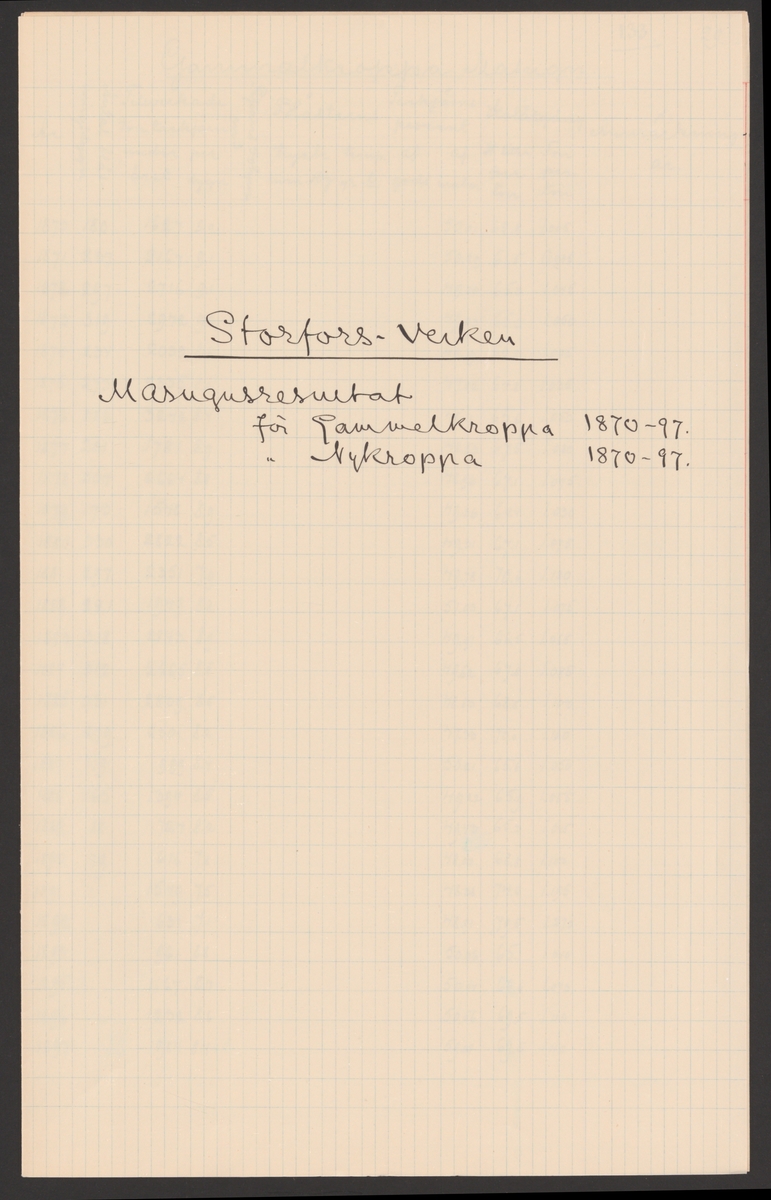 Storfors-Verken
Masugnsresultat
för Gammelkroppa 1870-97.
" Nykroppa 1870-97.